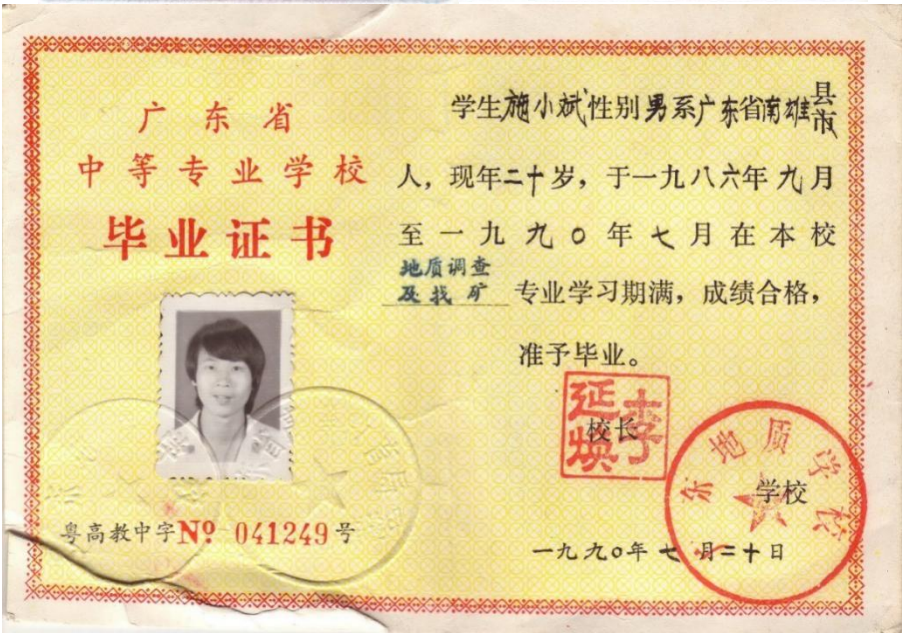 广东省
中等专业学校
毕业证书
粤高教中字No 041249号
学生施小斌性别男系广东省南雄县市
人，现年二十岁，于一九八六年九月
至一九九〇年七月在本校
地质调查
及找矿
专业学习期满，成绩合格，
准予毕业。
校长
李延焕
学校
广东地质学校
一九九〇年七月二十日